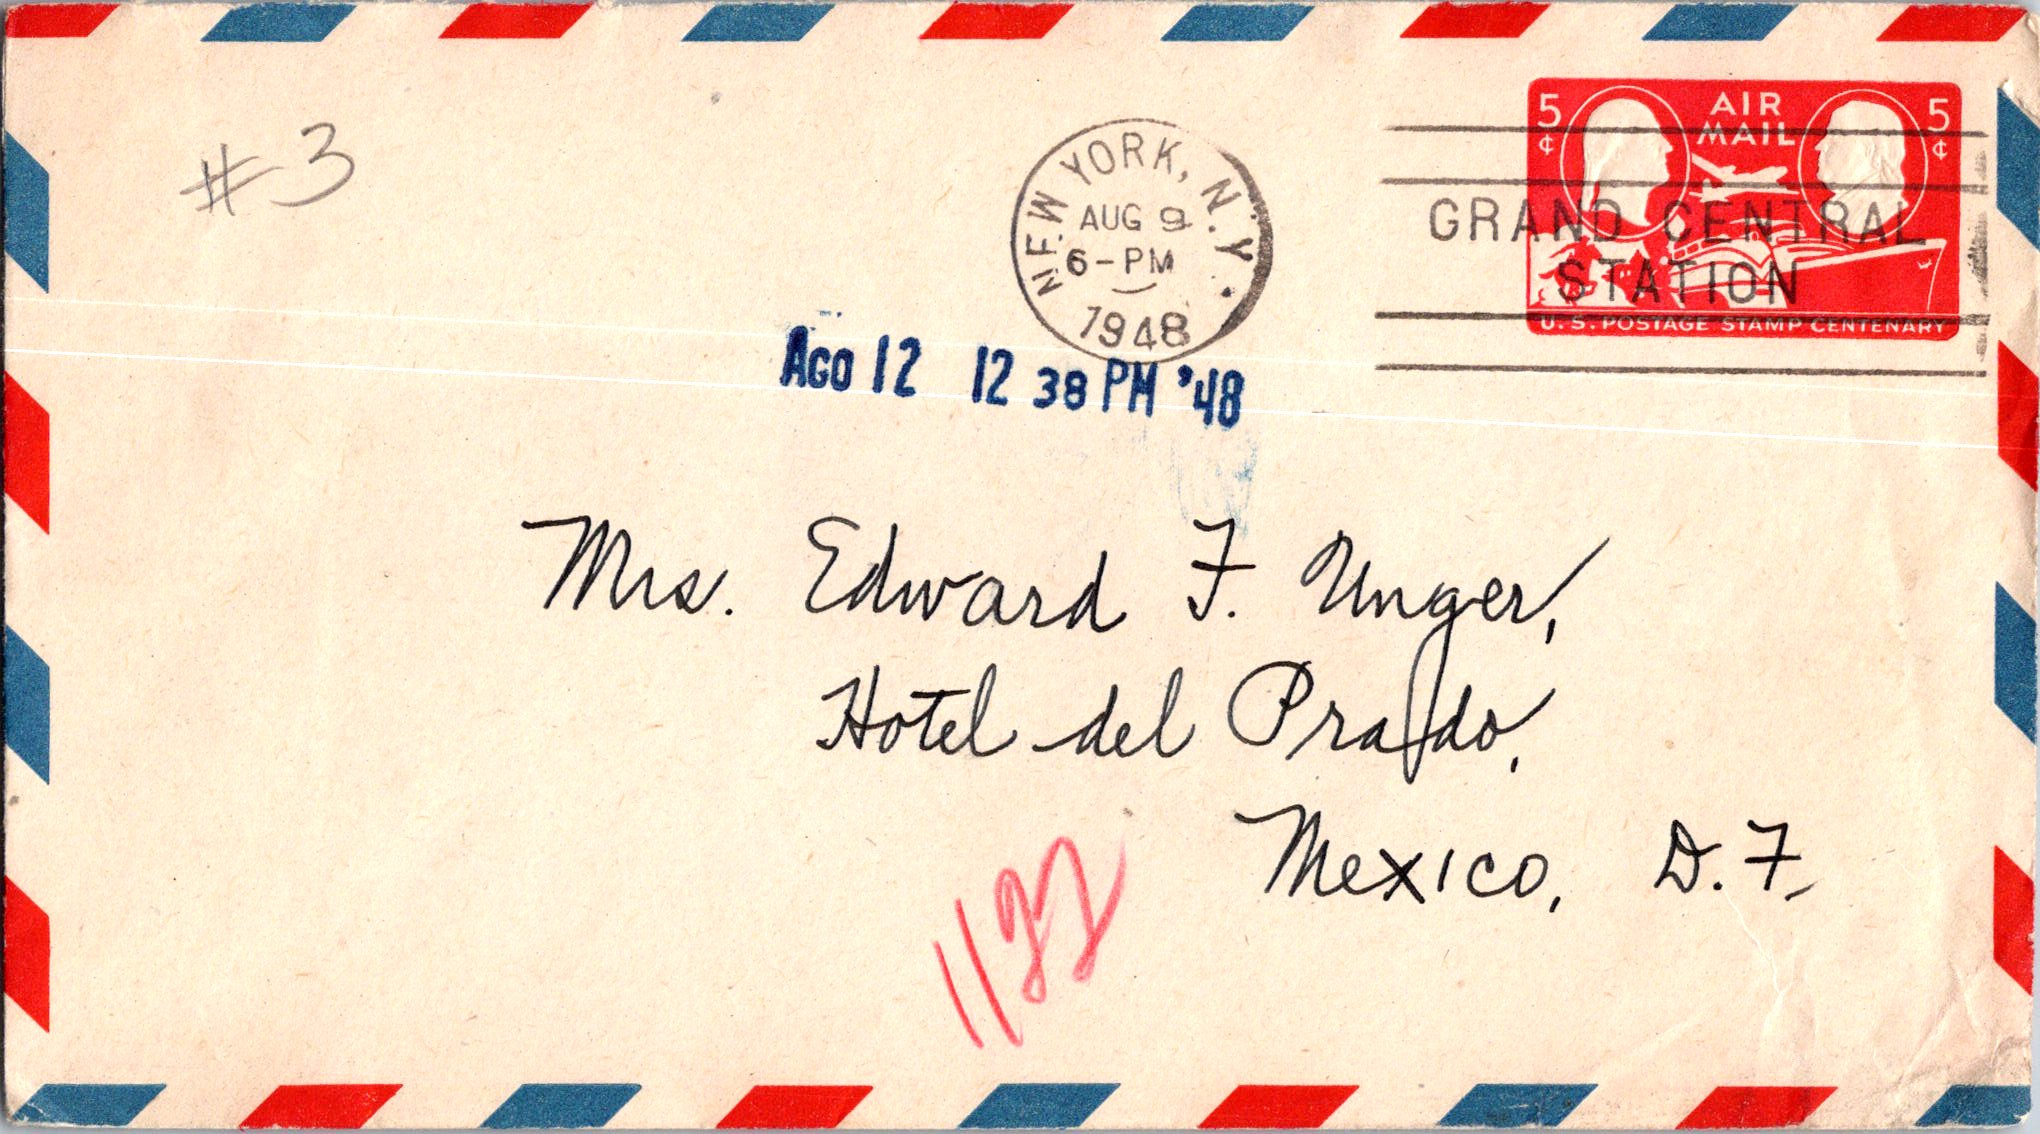 #3
NEW YORK, N.Y.
AUG 9
6-PM
1948
5¢ AIR MAIL 5¢
GRAND CENTRAL
STATION
U.S. POSTAGE STAMP CENTENARY
AGO 12 12 38 PM '48
Mrs. Edward F. Unger,
Hotel del Prado,
Mexico, D.F.
1132